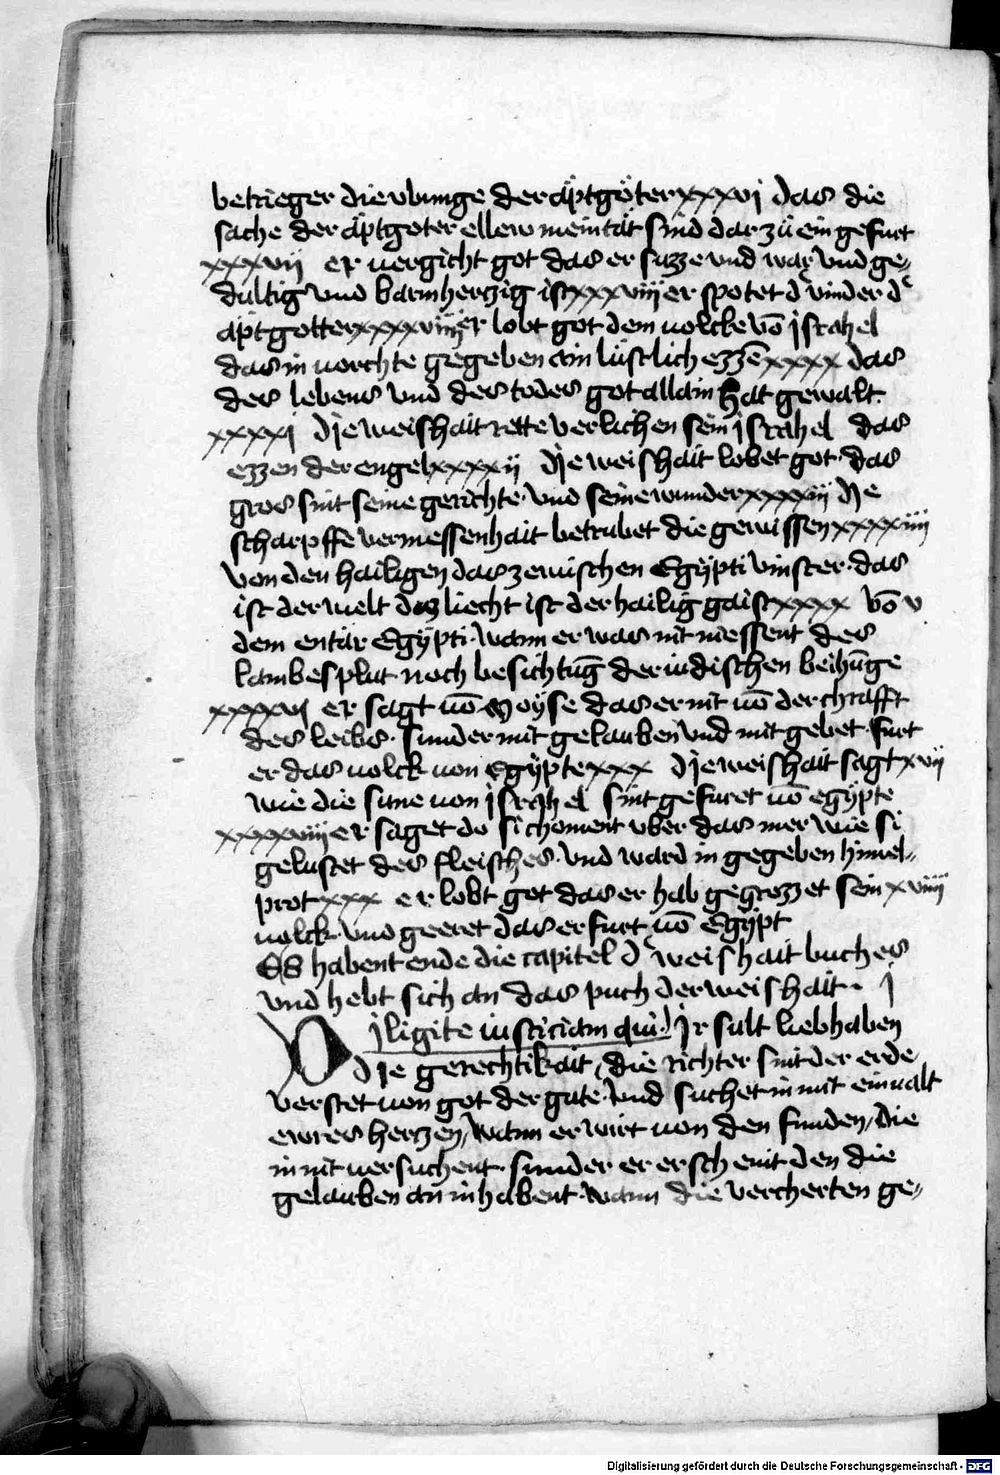 betrieger die vbunge der äptgöter xxxvj das die
sache der äptgoter ellew meintät sind dar zů ein gefurt
xxxvij er vergicht got das er suzze vnd war vnd ge-
dultig vnd barmherczig ist xxxviij er spotet d vinder d
äptgotter xxxviiij er lobt got dem volcke vō jsrahel
das in vorchte gegeben ain lüstlich ezzē xxxx das
des lebens vnd des todes got allain hat gewalt.
xxxxj Dje weishait rette verlichen sein jsrahel das
ezzen der engel xxxxij Dje weishait lobet got. das
gros sint seine gerichte. vnd seine wunder xxxxiij Dje
scharpffe vermessenhait betrubet die gewissen xxxxiiij
von den hailigen das zewischen Egÿpti vinster. das
ist der welt daz liecht ist der hailig gaist xxxx vō v
dem entär Egÿpti. wann er was nit niessent des
lambes plut noch besichtūg der iudischen beihūge
xxxxvj er sagt vō Moÿse das er nit vō der chrafft
des leibs. sunder mit gelauben vnd mit gebet. furt
er das volck von Egÿpte xxx Dje weishait sagt xvij
wie die sune von jsrahel sint gefuret vō egÿpte
xxxxviij er saget do si choment vber das mer wie si
gelustet des fleisches. vnd ward in gegeben himel-
prot xxx er lobt got das er hab gegrozzet sein xviiij
volck. vnd geeret das er furt vō Egÿpt
ES habent ende die capitel d weishait buches
vnd hebt sich an das puch der weishait. j
Djligite iusticiam qui. Jr sult liebhaben
Dje gerechtikait, die richter sint der erde
verstet von got der gute. vnd suchet in mit einualt
ewres herczen, wann er wirt von den funden, die
in nit versuchent. sunder er erscheint den die
gelauben an in habent. wann die vercherten ge-
Digitalisierung gefördert durch die Deutsche Forschungsgemeinschaft - DFG